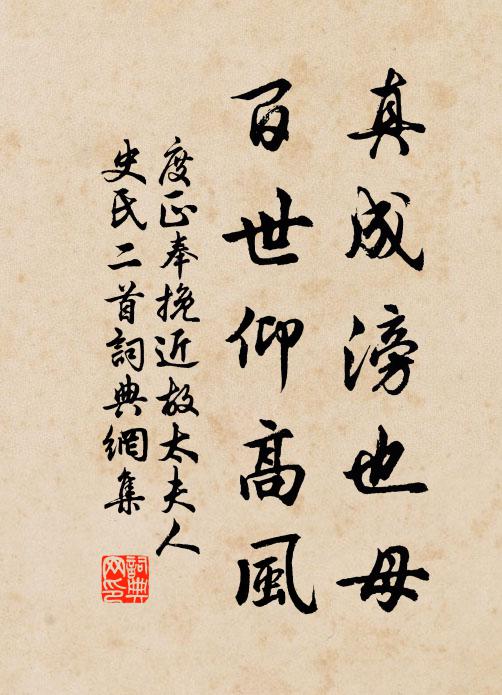 真成滂也母
百世仰高風
度正奉挽近故太夫人
史氏二首詞典網集
詞典網印